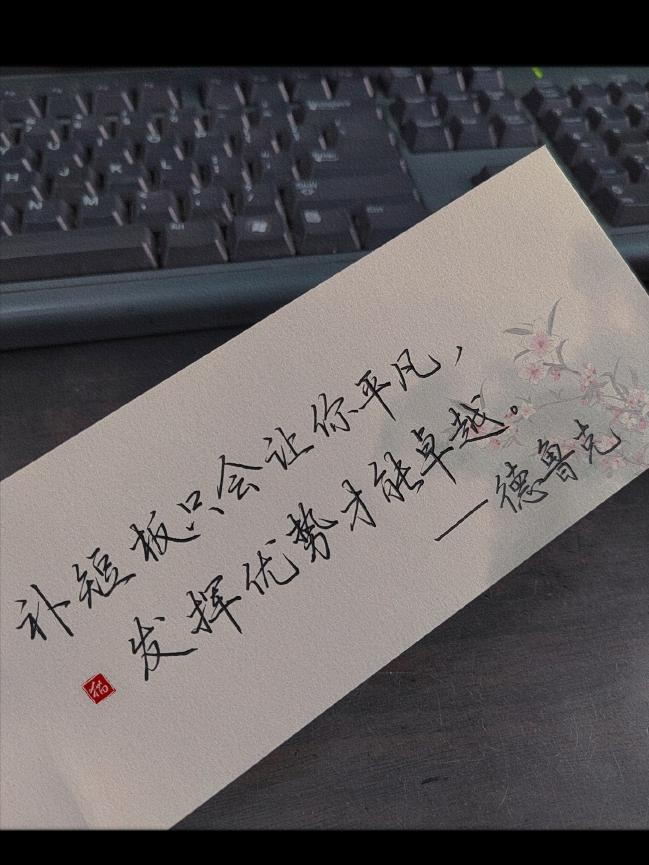 补短板只会让你平凡，
发挥优势才能卓越。
—德鲁克